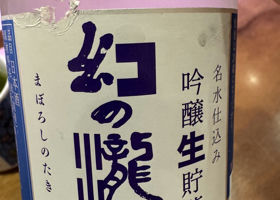 名水仕込み
吟醸生貯
幻の瀧
まぼろしのたき